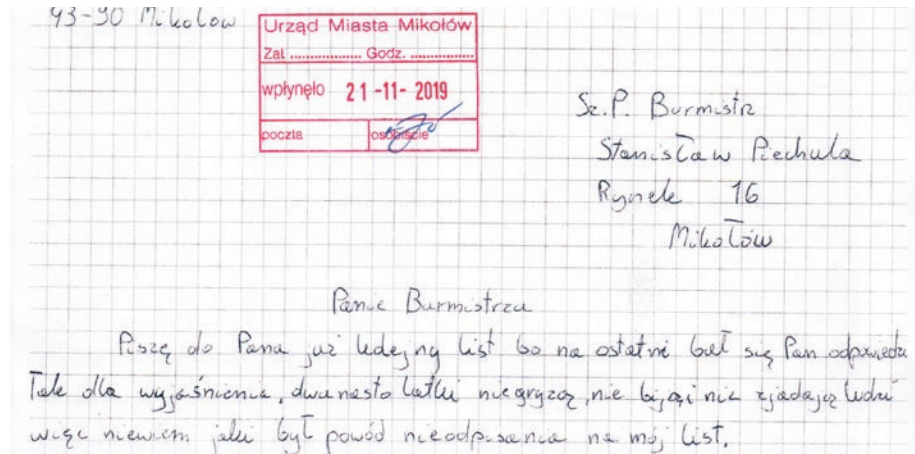 43-90 Mikołow
Urząd Miasta Mikołów
Zał. ................. Godz. ................
wpłynęło 21-11-2019
poczta osobiście
Sz.P. Burmistrz
Stanisław Piechula
Rynek 16
Mikołów
Panie Burmistrza
Piszę do Pana już kolejny list bo na ostatni bał się Pan odpowiedz
Tak dla wyjaśnienia, dwunasto latki niegryzą, nie biją i nie zjadają ludzi
więc niewiem jaki był powód nieodpisania na mój list.